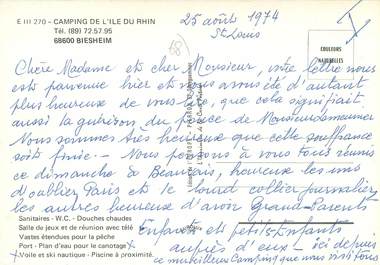 E III 270 - CAMPING DE L'ILE DU RHIN
Tél. (89) 72.57.95
68600 BIESHEIM
25 août 1974
St Louis
68
COULEURS
NATURELLES
Chère Madame et cher Monsieur, votre lettre nous
est parvenue hier et nous avons été d'autant
plus heureuse de vous lire, que cela signifiait
aussi la guérison du pouce de Monsieur
Nous sommes très heureux que cette souffrance
soit finie - Nous pensons à vous tous réunis
ce dimanche à Beauvais, heureux les uns
d'oublier Paris et le lourd collier journalier
les autres heureux d'avoir Grand-Parents
Enfants et petits Enfants
auprès d'eux - ici depuis
ce merveilleux Camping que nous
Sanitaires - W.C. - Douches chaudes
Salle de jeux et de réunion avec télé
Vastes étendues pour la pêche
Port - Plan d'eau pour le canotage
Voile et ski nautique - Piscine à proximité.